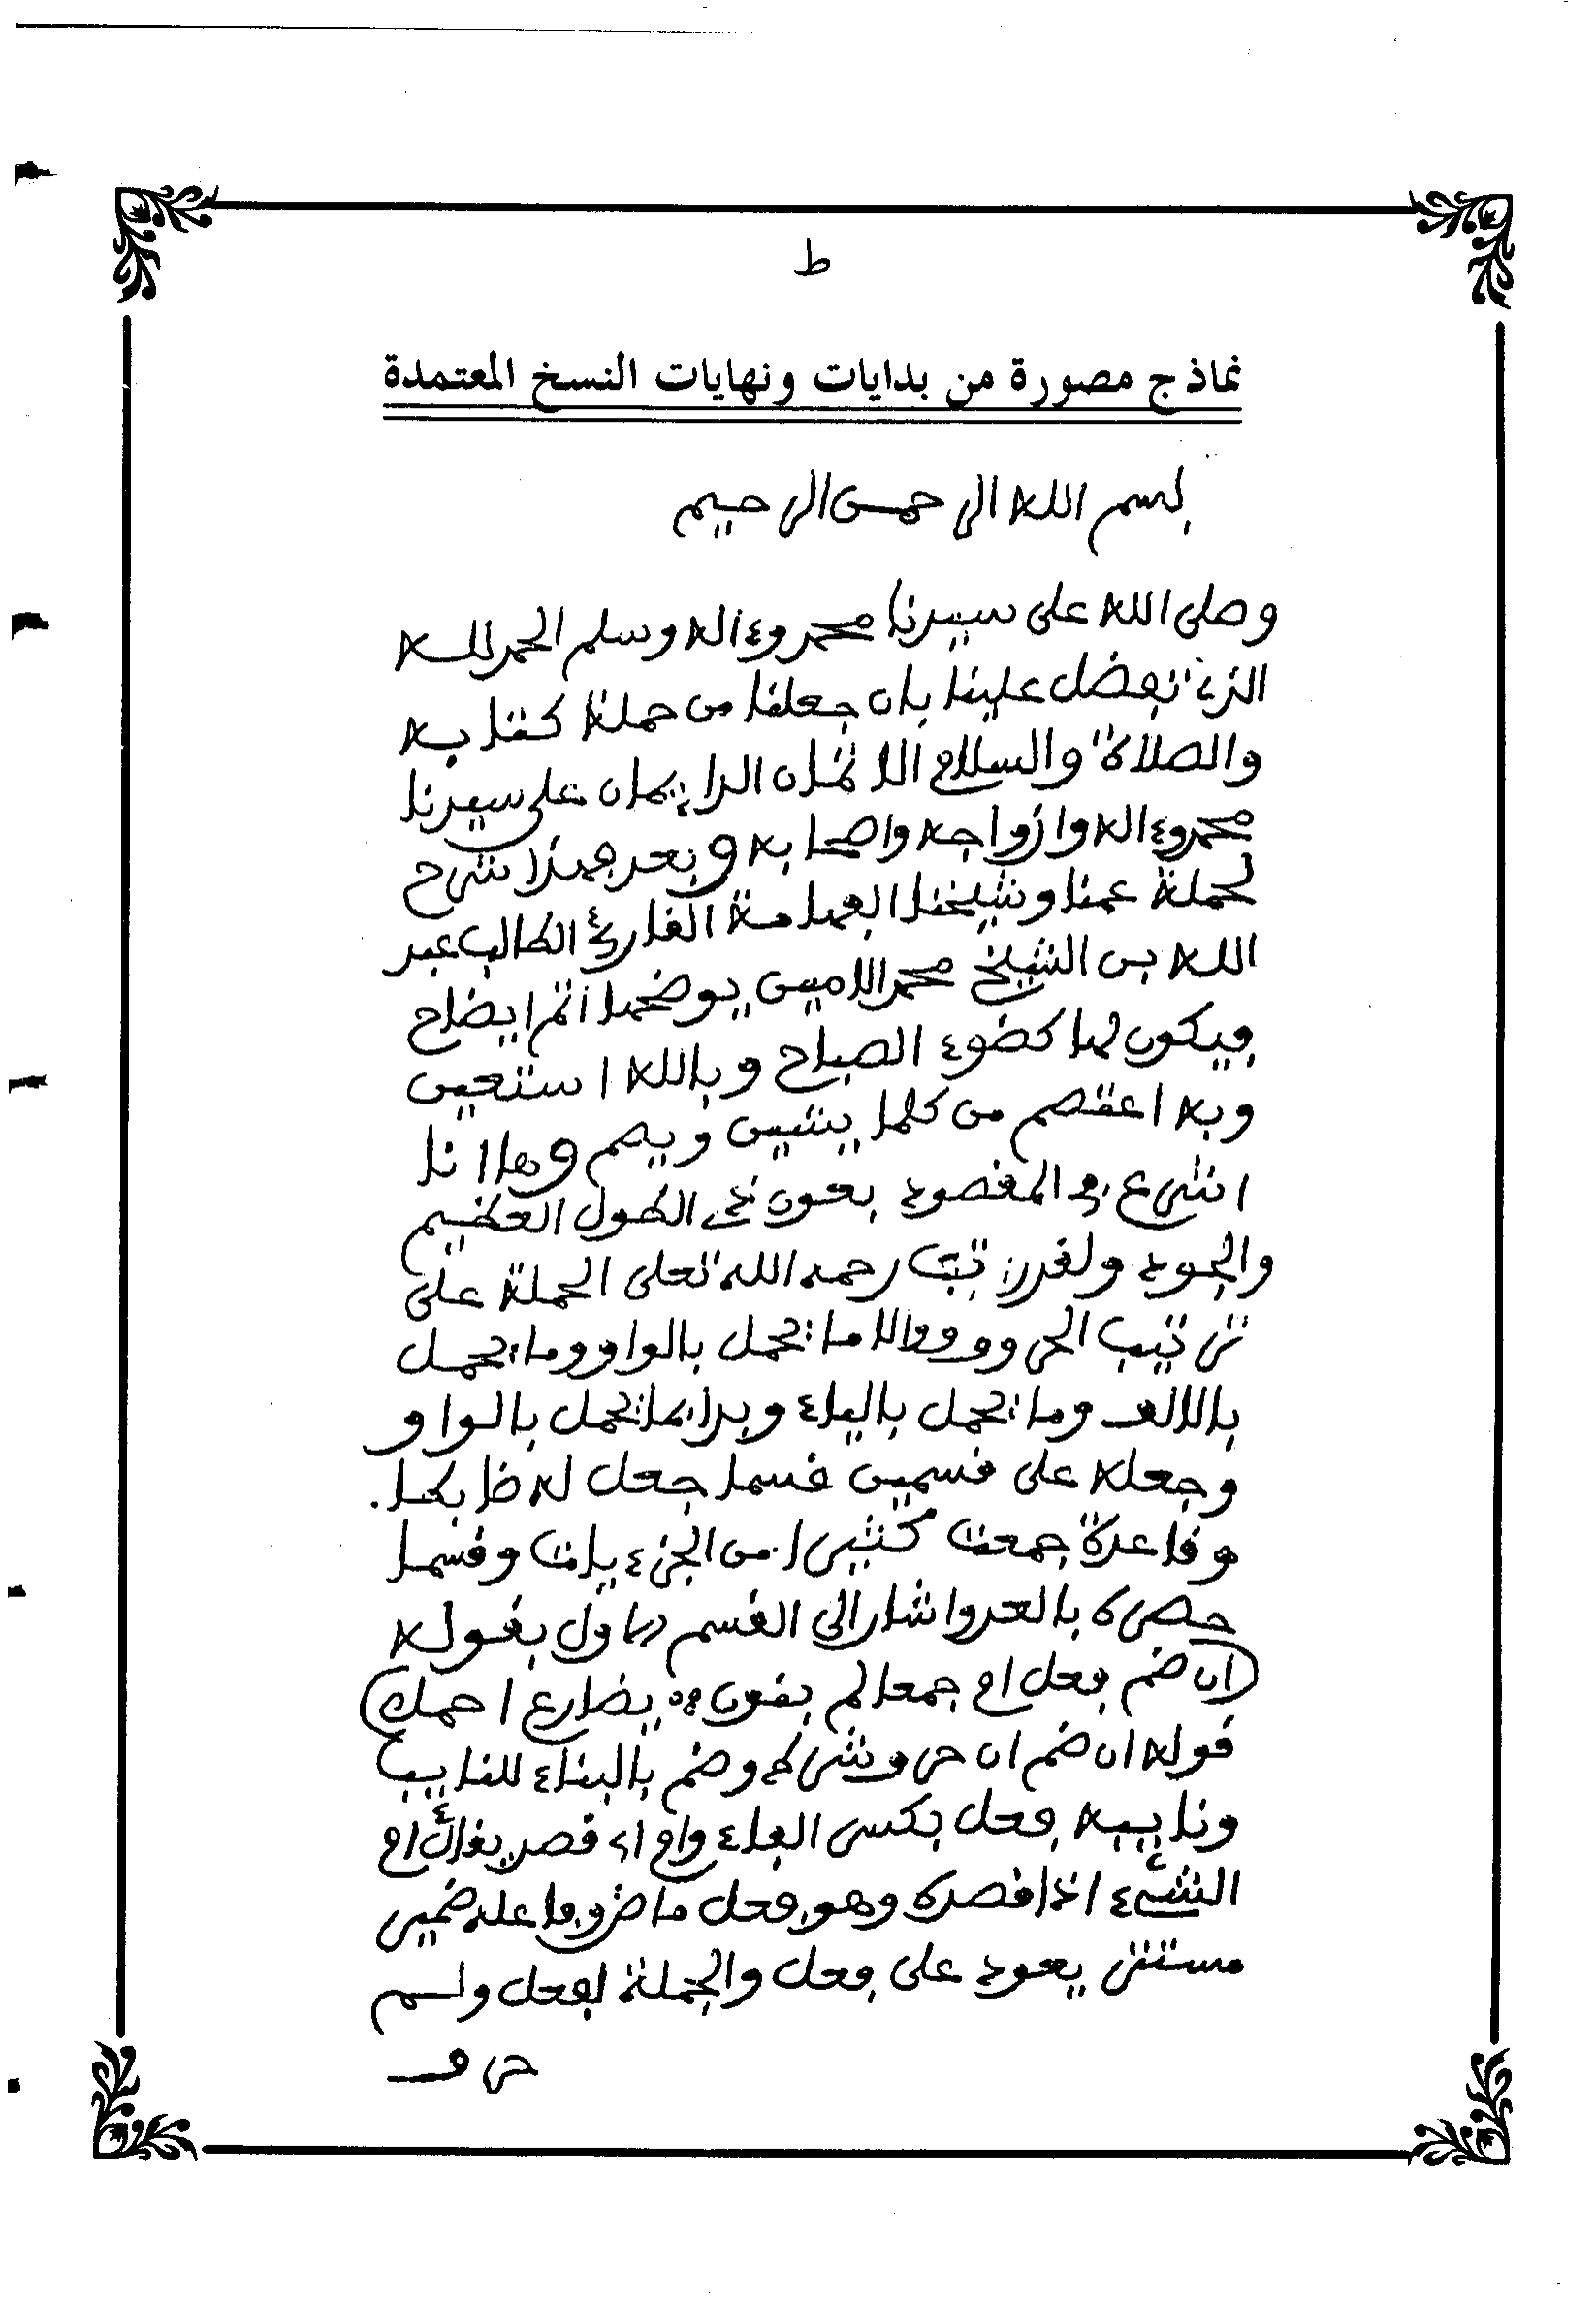 ط
نماذج مصورة من بدايات ونهايات النسخ المعتمدة
بسم الله الرحمن الرحيم
وصلى الله على سيدنا محمد وءاله وسلم الحمد لله
الذي تفضل علينا بان جعلنا من حملة كتابه
والصلاة والسلام الاتمان الدايمان على سيدنا
محمد وءاله وازواجه واصحابه وبعد فهذا شرح
لحملة عمنا وشيخنا العلامة القارئ الطالب عبد
الله بن الشيخ محمد الامين يوضحها اتم ايضاح
فيكون لها كضوء الصباح وبالله استعين
وبه اعتصم من كلما يشين ويصم وها انا
اشرع في المقصود بعون ذي الطول العظيم
والجود ولقد رتب رحمه الله تعلى الحملة على
ترتيب الحروف والا ما يحمل بالواو وما يحمل
بالالف وما يحمل بالياء وبدا بما يحمل بالواو
وجعله على قسمين قسما جعل له ضابطا
وقاعدة جمعت كثيرا من الجزءيات وقسما
حصره بالعد واشار الى القسم الاول بقوله
(ان ضم فعل ام جمعا لم بنون يضارع احملن)
قوله ان ضم ان حرف شرط وضم بالبناء للنايب
ونايبه فعل بكسر الفاء وام اي قصد يقال ام
الشيء اذا قصده وهو فعل ماض وفاعله ضمير
مستتر يعود على فعل والجملة لفعل ولم
حرف